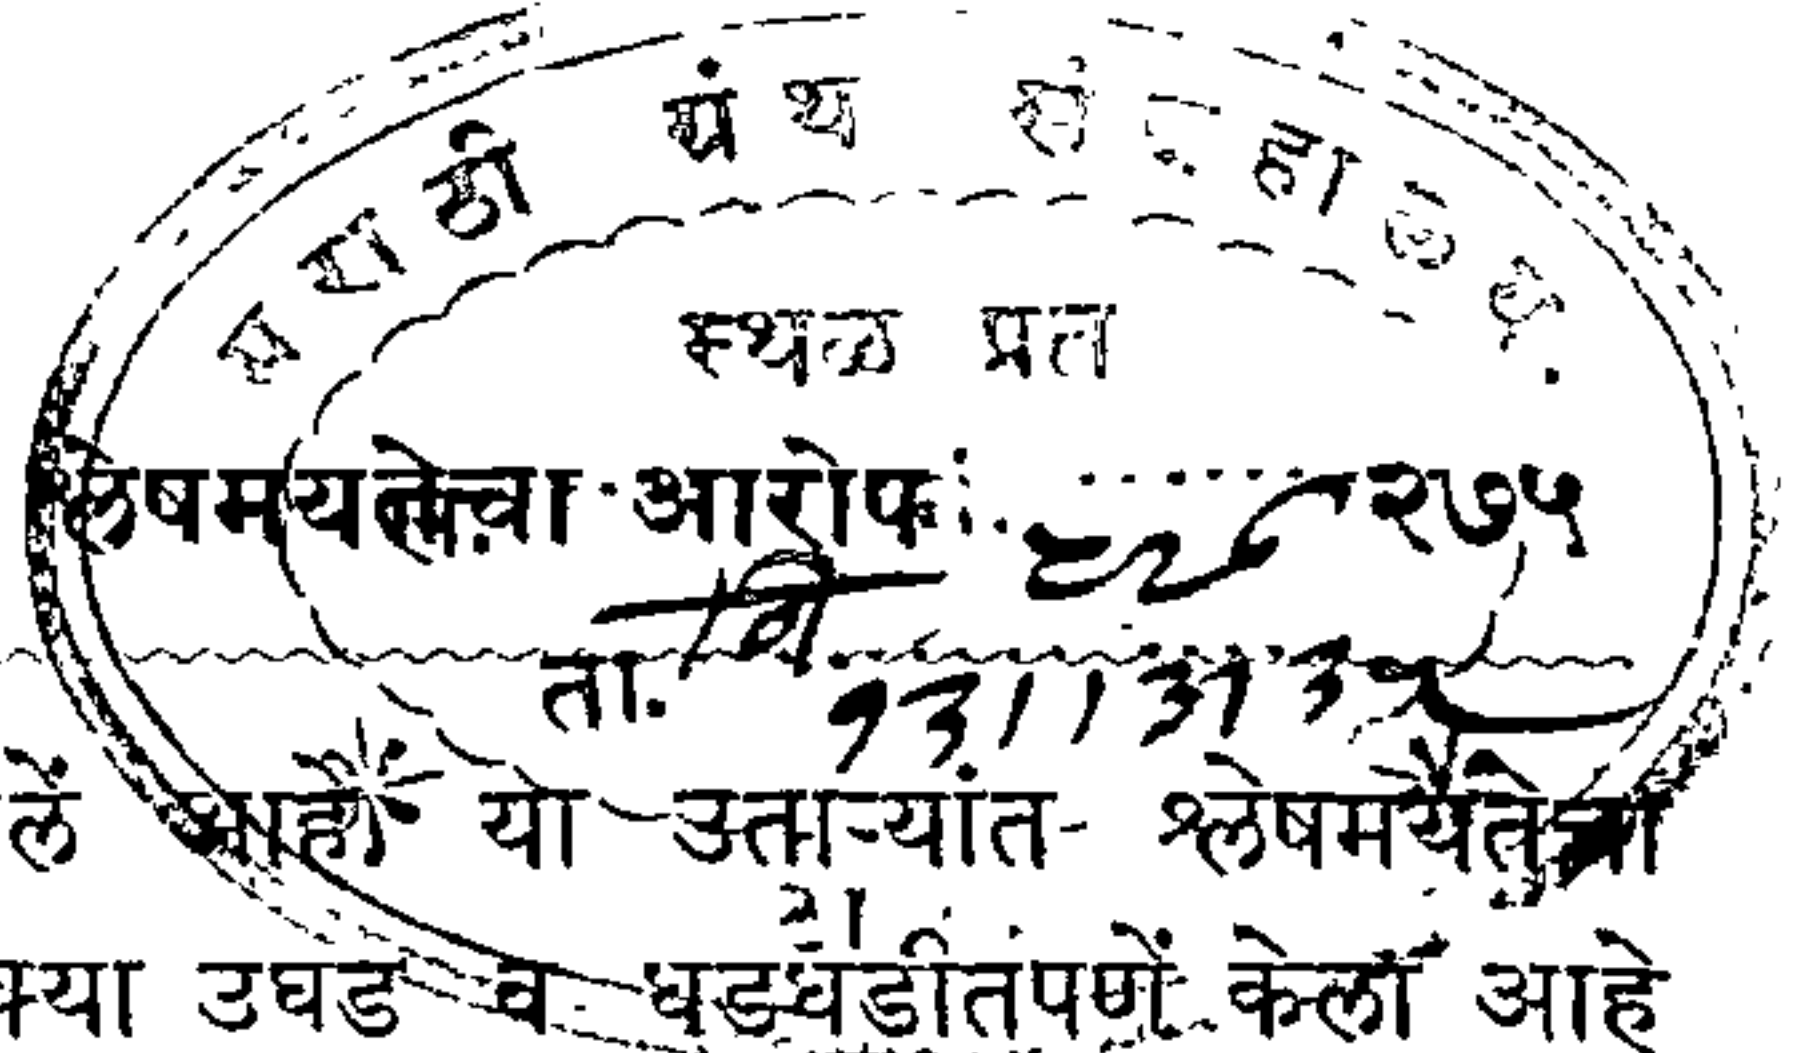 मराठी ग्रंथ संग्रहालय
स्थळ प्रत
श्लेषमयत्वाचा आरोप २७५
ता.
लें आहे या उताऱ्यांत श्लेषमयतेचा
क्या उघड व धडधडीतपणें केला आहे